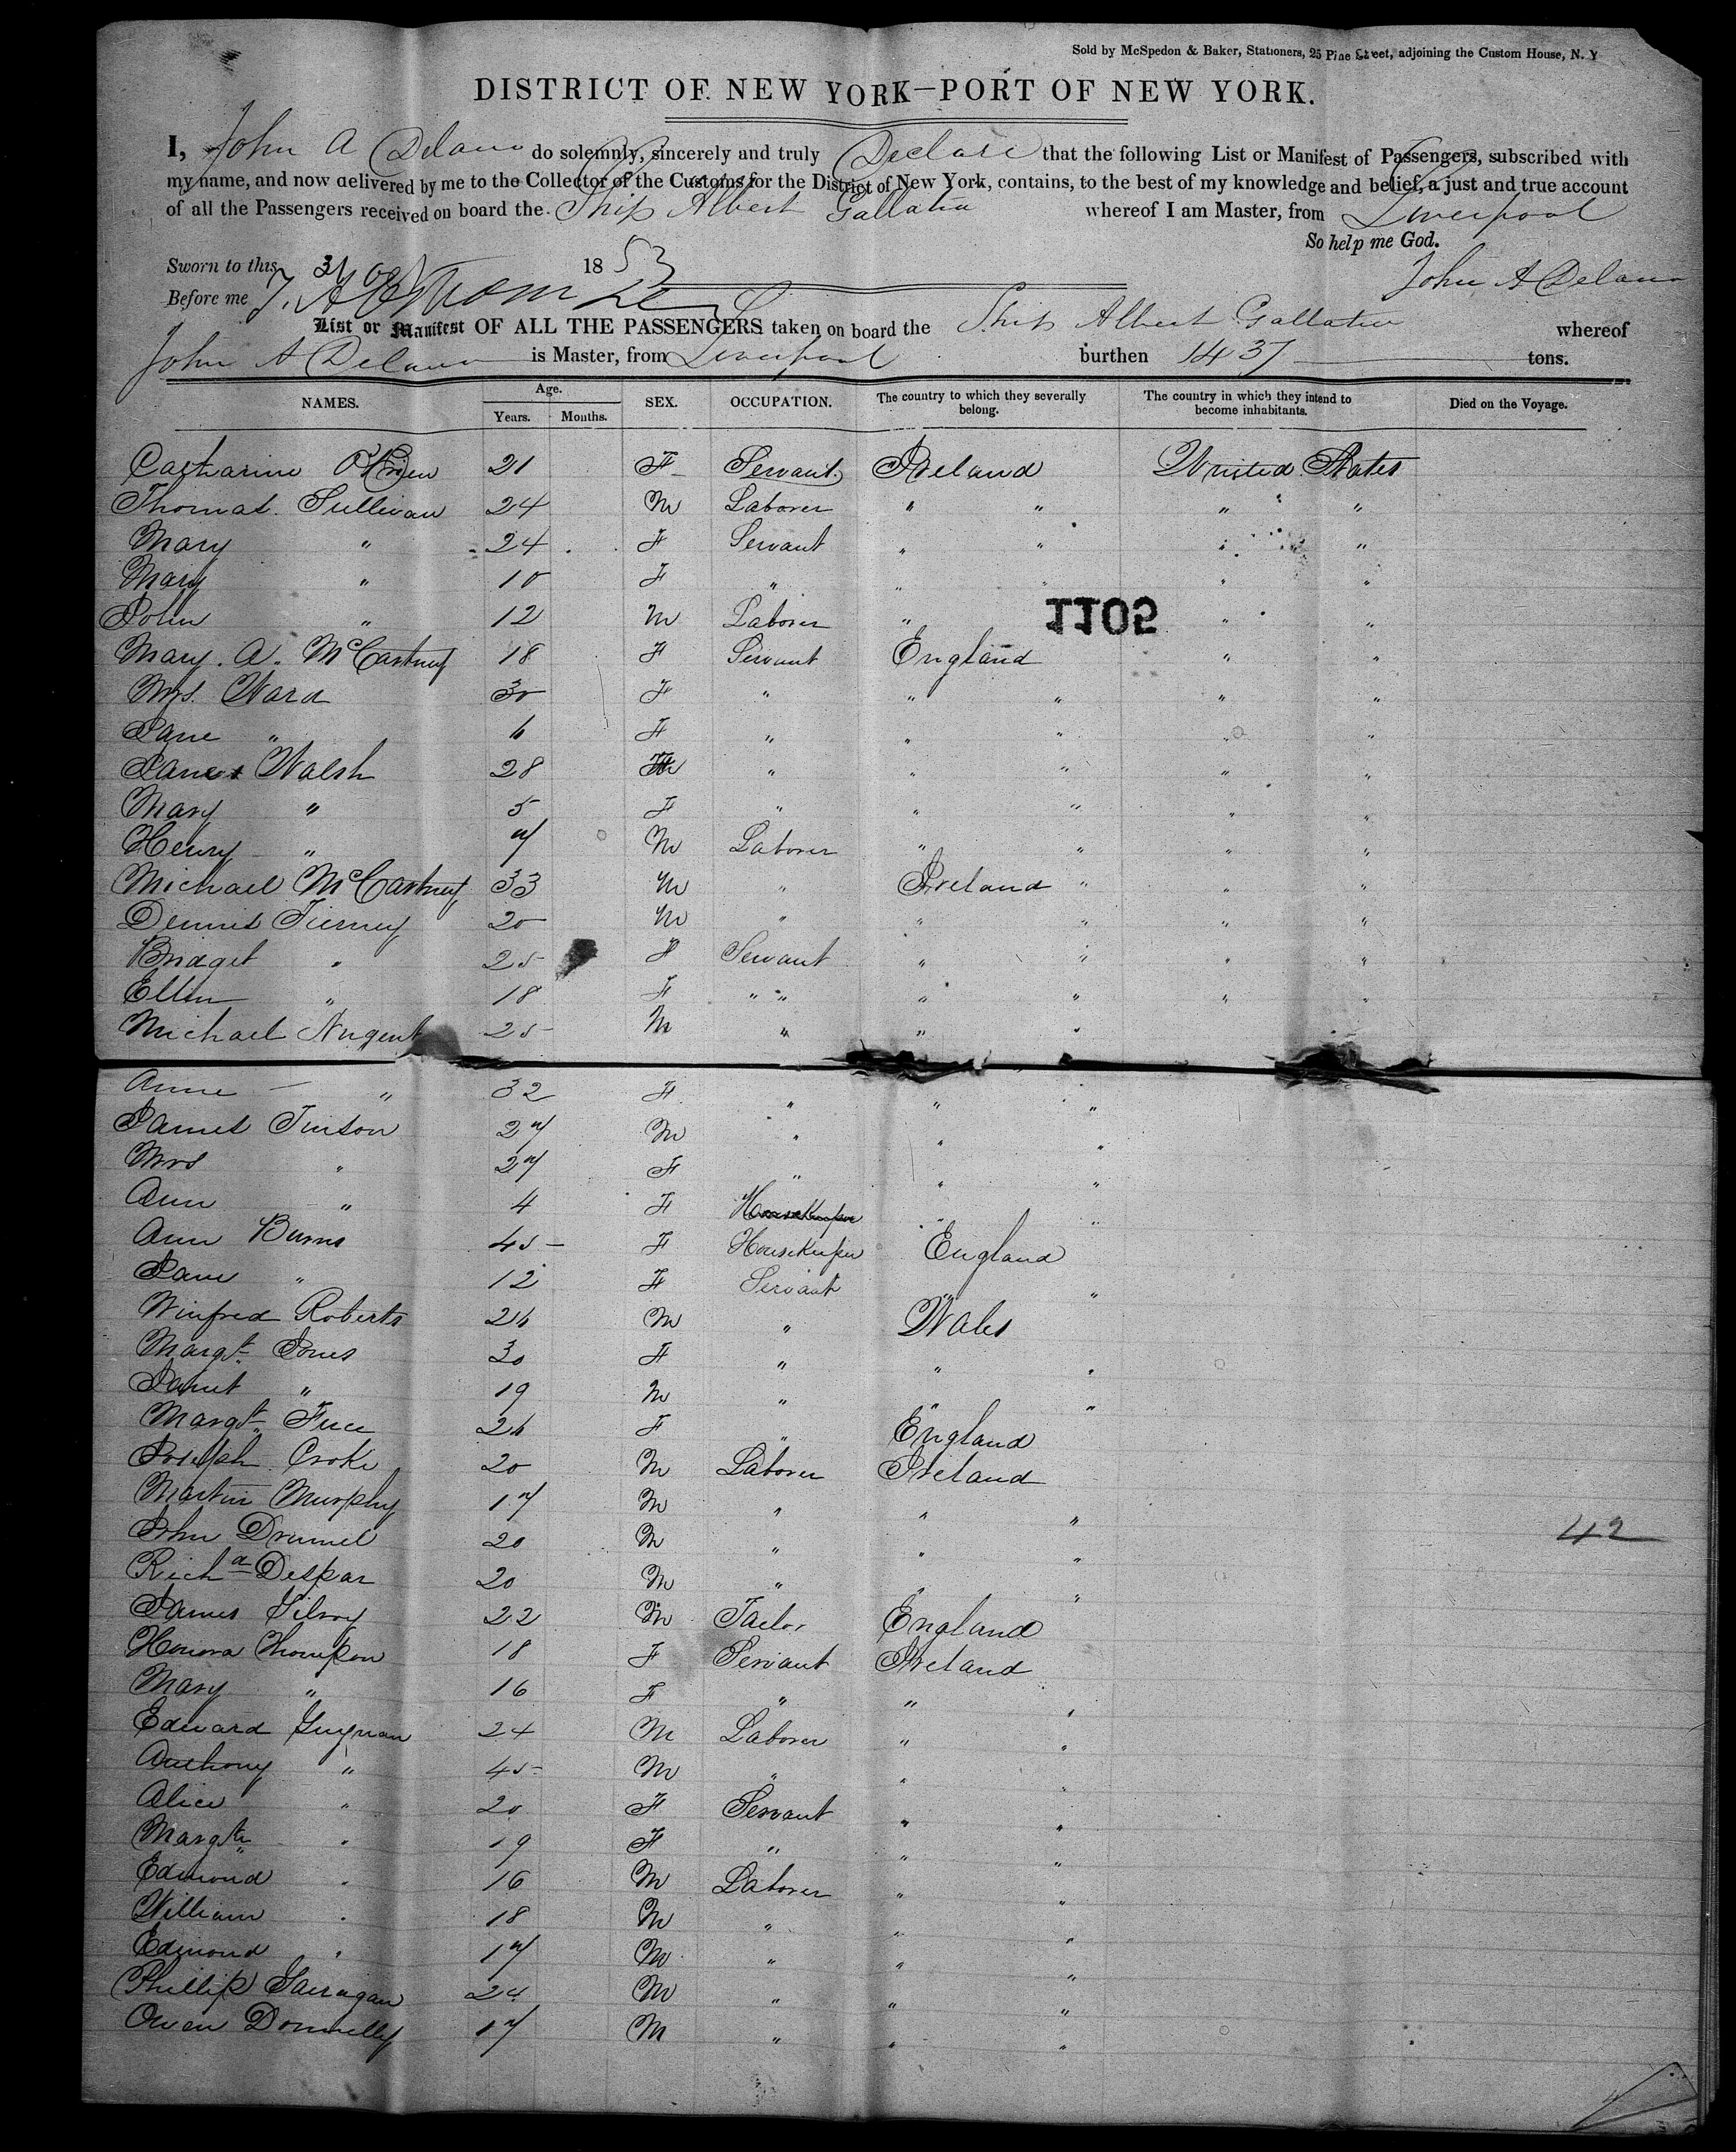 Sold by McSpedon & Baker, Stationers, 25 Pine Street, adjoining the Custom House, N. Y
DISTRICT OF NEW YORK—PORT OF NEW YORK.
I, John A Delano do solemnly, sincerely and truly Declare that the following List or Manifest of Passengers, subscribed with
my name, and now delivered by me to the Collector of the Customs for the District of New York, contains, to the best of my knowledge and belief, a just and true account
of all the Passengers received on board the Ship Albert Gallatin whereof I am Master, from Liverpool
So help me God.
Sworn to this 31 Oct 1853
John A Delano
Before me
List or Manifest OF ALL THE PASSENGERS taken on board the Ship Albert Gallatin whereof
John A Delano is Master, from Liverpool burthen 1437 tons.
NAMES. Age. Years. Months. SEX. OCCUPATION. The country to which they severally belong. The country in which they intend to become inhabitants. Died on the Voyage.
Catharine O'Brien 21 F Servant Ireland United States
Thomas Sullivan 24 M Laborer " " " "
Mary " 24 F Servant " " " "
Mary " 10 F " " " " "
John " 12 M Laborer " 1105 " "
Mary A. McCartney 18 F Servant England " "
Mrs. Ward 30 F " " " " "
Jane " 6 F " " " " "
James Walsh 28 M " " " " "
Mary " 5 F " " " " "
Henry " 7 M Laborer " " " "
Michael McCartney 33 M " Ireland " " "
Dennis Tierney 20 M " " " " "
Bridget " 25 F Servant " " " "
Ellen " 18 F " " " " " "
Michael Nugent 25 M " " "
Anne " 32 F " " "
James Tinson 27 M " " "
Mrs " 27 F " " "
Ann " 4 F Housekeeper " "
Ann Burns 45 F Housekeeper England
Jane " 12 F Servant " "
Winfred Roberts 26 M " Wales
Margt. Jones 30 F " " "
Janet " 19 M " " "
Margt. 26 F " England
Joseph Croke 20 M Laborer Ireland
Martin Murphy 17 M " " "
John Drumel 20 M " " "
Richd Despar 20 M " " "
James Gilroy 22 M Tailor England
Honora Thompson 18 F Servant Ireland
Mary " 16 F " " "
Edward 24 M Laborer " "
Anthony " 45 M " " "
Alice " 20 F Servant " "
Margt " 19 F " " "
Edmond " 16 M Laborer " "
William " 18 M " " "
Edmond " 17 M " " "
Phillip 24 M " " "
Owen Donnelly 17 M " " "
42